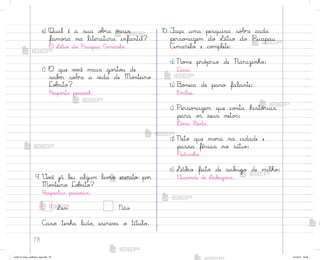 e) Qual é a sua obra mais
famosa na literatura infantil?
O Sítio do Picapau Amarelo.
f) O que você mais gostou de
saber sobre a vida de Monteiro
Lobato?
Resposta pessoal.
9. Você já leu algum livro escrito por
Monteiro Lobato?
Respostas pessoais.
Sim Não
Caso tenha lido, escreva o título.
78
10. Faça uma pesquisa sobre cada
personagem do Sítio do Picapau
Amarelo e complete:
a) Nome próprio de Narizinho:
Lúcia.
b) Boneca de pano falante:
Emília.
c) Personagem que conta histórias
para os seus netos:
Dona Benta.
d) Neto que mora na cidade e
passa férias no sítio:
Pedrinho.
e) Sábio feito de sabugo de milho:
Visconde de Sabugosa.